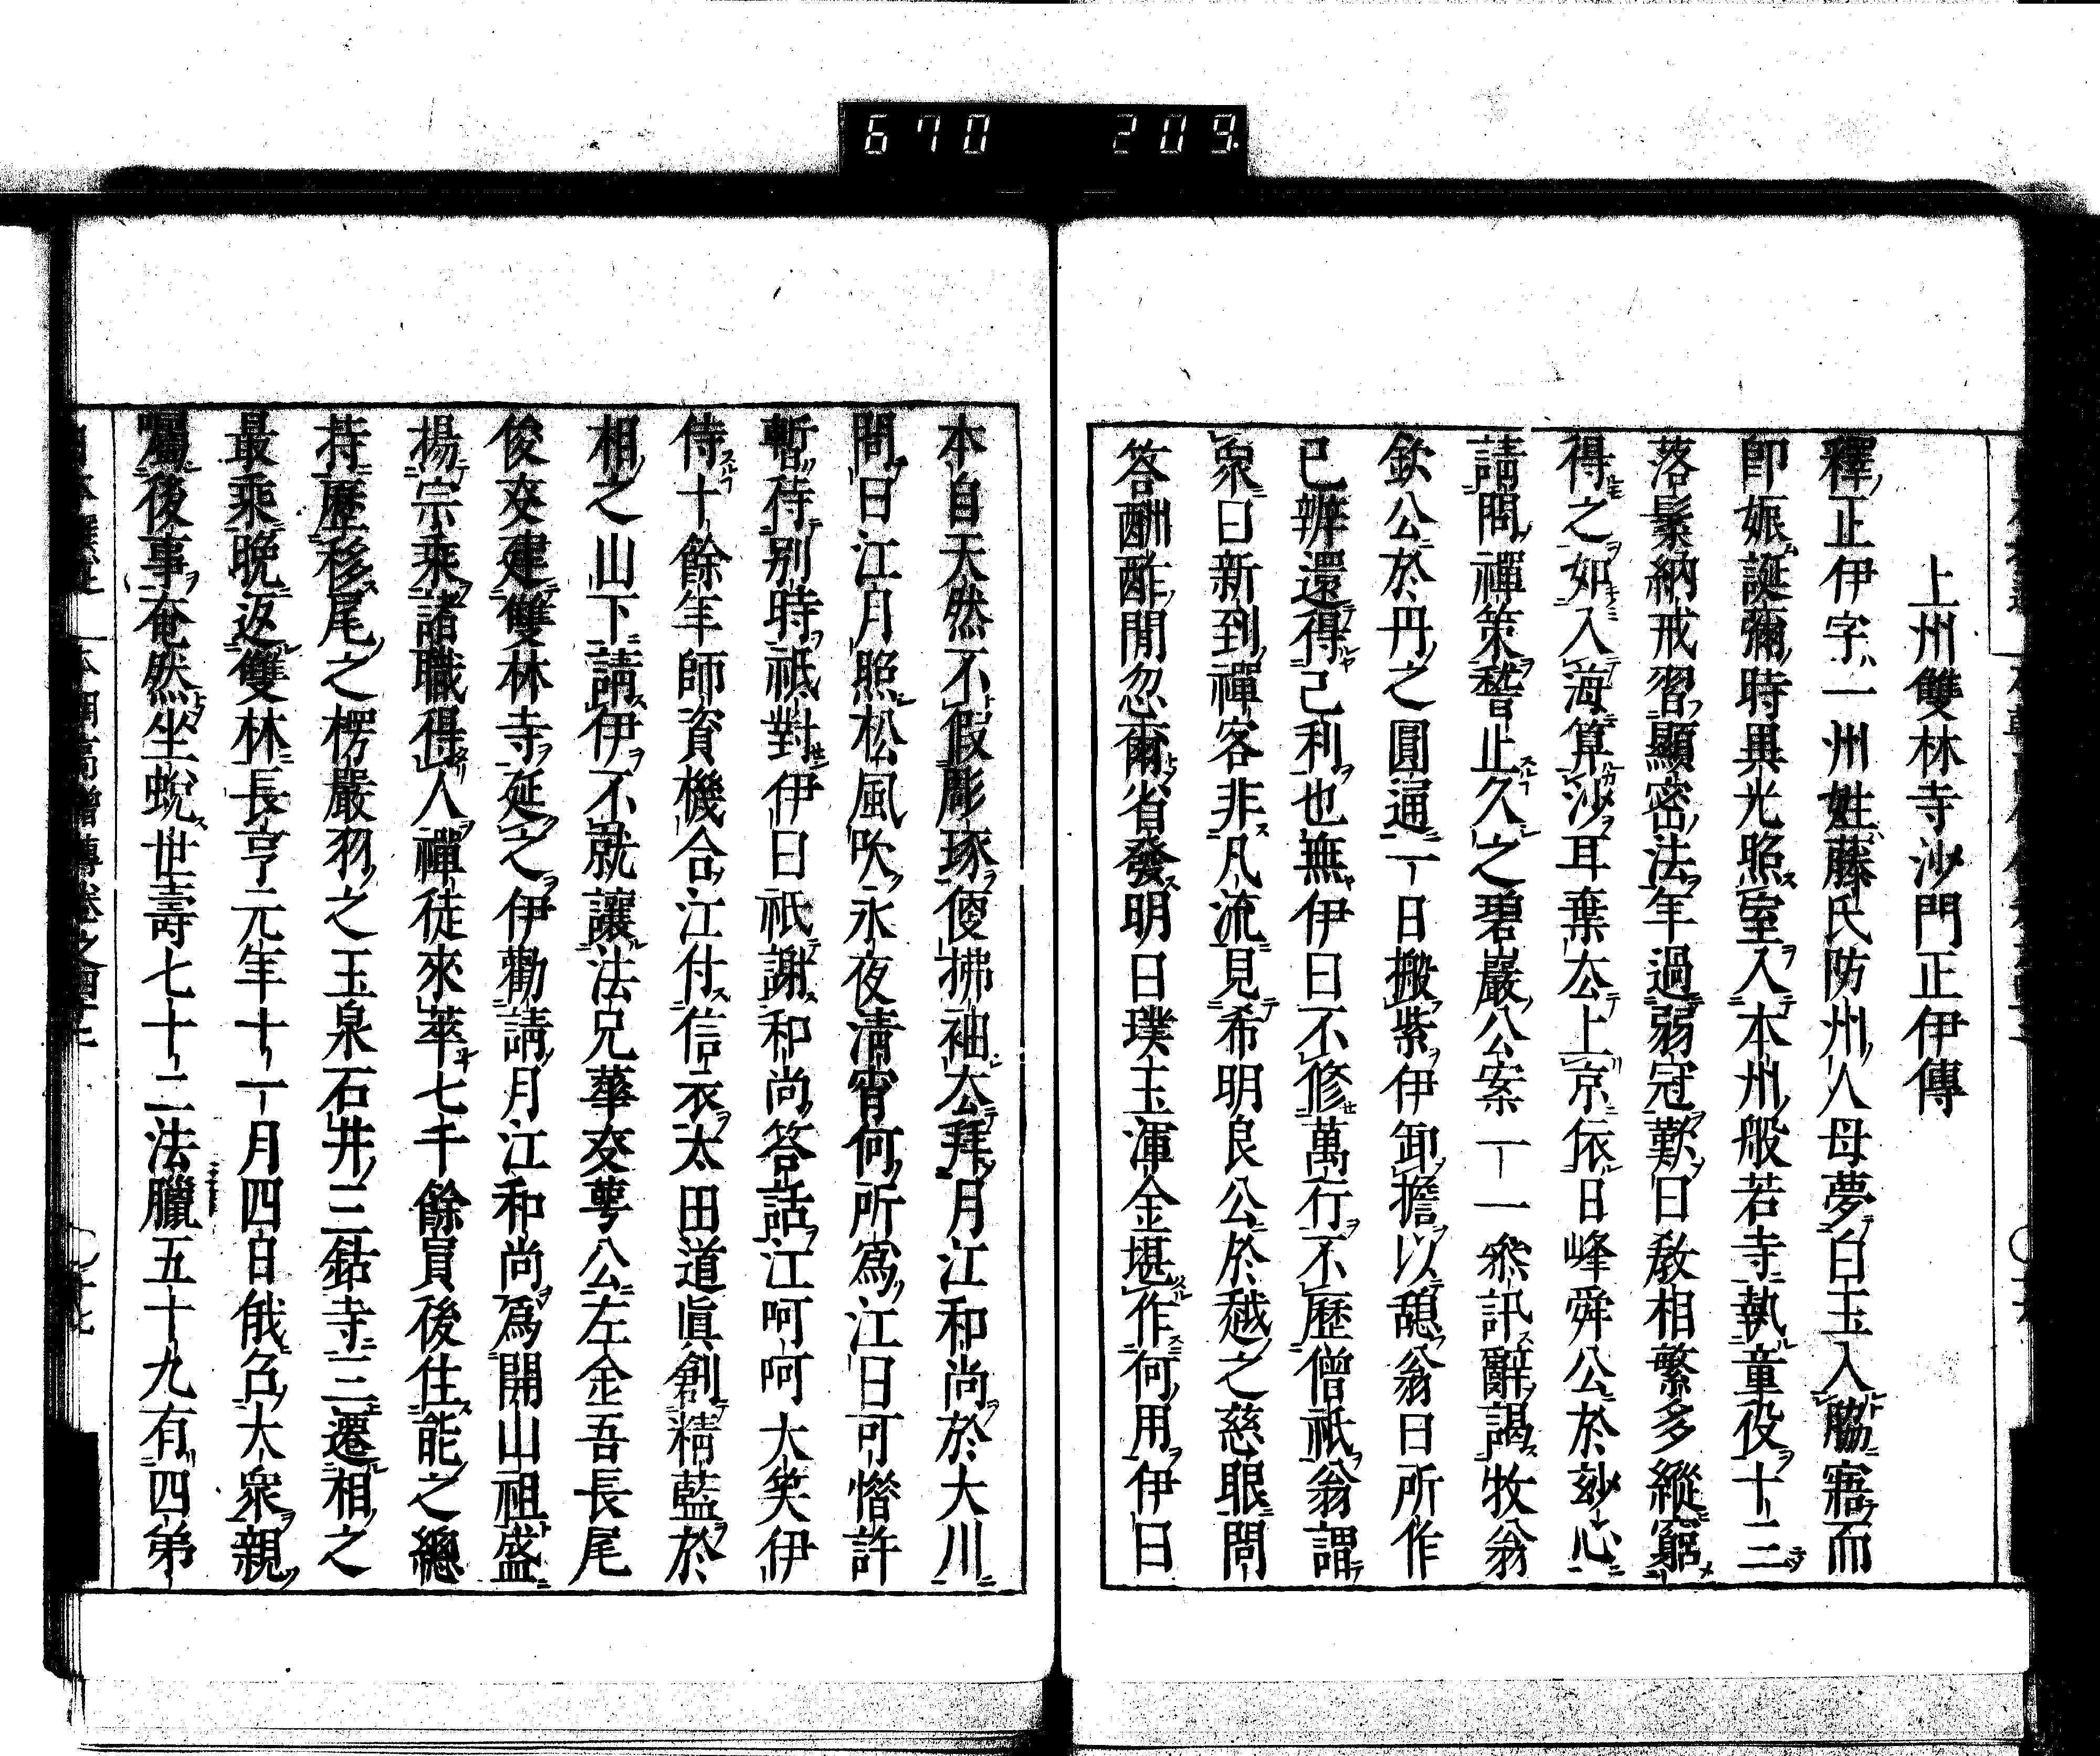 670 209
上州雙林寺沙門正伊傳
釋正伊字一州姓藤氏防州人母夢白玉入脇寤而
即娠誕彌時異光照室入本州般若寺執童役十三
落髮納戒習顯密法年過弱冠歎曰教相繁多縱窮
得之如入海算沙耳棄去上京依日峰舜公於玅心
請問禪策暫止久之碧巖公案一一參訊辭謁牧翁
欽公於丹之圓通一日搬紫伊卸擔以憩翁曰所作
已辨還得己利也無伊曰不修萬行不歷僧祇翁謂
衆曰新到禪客非凡流見希明良公於越之慈眼問
答酬酢間忽爾省發明曰璞玉渾金堪作何用伊曰
本自天然不假彫琢便拂袖去拜月江和尚於大川
問曰江月照松風吹永夜清宵何所爲江曰可憯許
暫待別時祇對伊曰祇謝和尚答話江呵呵大笑伊
侍十餘年師資機合江付信衣太田道眞創精藍於
相之山下請伊不就讓法兄華叟萼公左金吾長尾
俊叟建雙林寺延之伊勸請月江和尚爲開山祖盛
揚宗乘諸職得人禪徒來萃七千餘員後住能之總
持歷移尾之楞嚴羽之玉泉石井三鈷寺三遷相之
最乘晚返雙林長亨元年十一月四日俄召大衆親
囑後事奄然坐蛻世壽七十二法臘五十九有四弟
本朝高僧傳卷之四十二